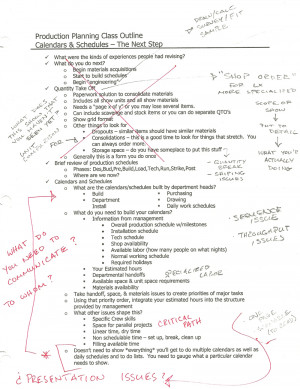 DRAW/CALC
SURVEY/FIT
SAMPLE
Production Planning Class Outline
Calendars & Schedules – The Next Step
✓ What were the kinds of experiences people had revising?
✓ What do you do next?
o Begin materials acquisitions
o Start to build schedules
o Begin "engineering"
✓ Quantity Take Off
o Paperwork solution to consolidate materials
o Includes all show units and all show materials
o Needs a "page x of y" or you may lose several items.
o Can include scavenge and stock items or you can do separate QTO's
o Show grid format
o Other things to look for
Dropouts – similar items should have similar materials
Consolidations – this is a good time to look for things that stretch. You can always order more.
Storage space – do you have someplace to put this stuff
o Generally this is a form you do once
✓ Brief review of production schedules
o Phases: Des,Bud,Pre,Build,Load,Tech,Run,Strike,Post
o Where are we now?
✓ Calendars and Schedules
o What are the calendars/schedules built by department heads?
• Build • Purchasing
• Department • Drawing
• Install • Daily work schedules
o What do you need to build your calendars?
• Information from management
• Overall production schedule w/milestones
• Installation schedule
• Tech schedule
• Shop availability
• Available labor (how many people on what nights)
• Normal working schedule
• Required holidays
• Your Estimated hours
• Departmental handoffs
SPECIALIZED
LABOR
• Available space & unit space requirements
• Materials availability
o Take handoff, space, & materials issues to create priorities of major tasks
o Using that priority order, integrate your estimated hours into the structure provided by management
o What other issues shape this?
• Specific Crew skills
• Space for parallel projects
• Linear time, dry time
• Non schedulable time – set up, break, clean up
• Filling available time
CRITICAL
PATH
o Doesn't need to show "everything" you'll get to do multiple calendars as well as daily schedules and to do lists. You need to gauge what a particular calendar needs to show.
"SHOP ORDER"
FOR
MORE SPECIALIZED
SCOPE OR
SHOW
PUT TO
DETAIL
WHAT YOU'RE
ACTUALLY
DOING
QUANTITY
BREAK
SHIPPING
ISSUES
SEQUENCE
ISSUES
THROUGHPUT
ISSUES
FOR
WHAT DO
YOU NEED TO
COMMUNICATE?
TO WHOM?
PRESENTATION ISSUES?